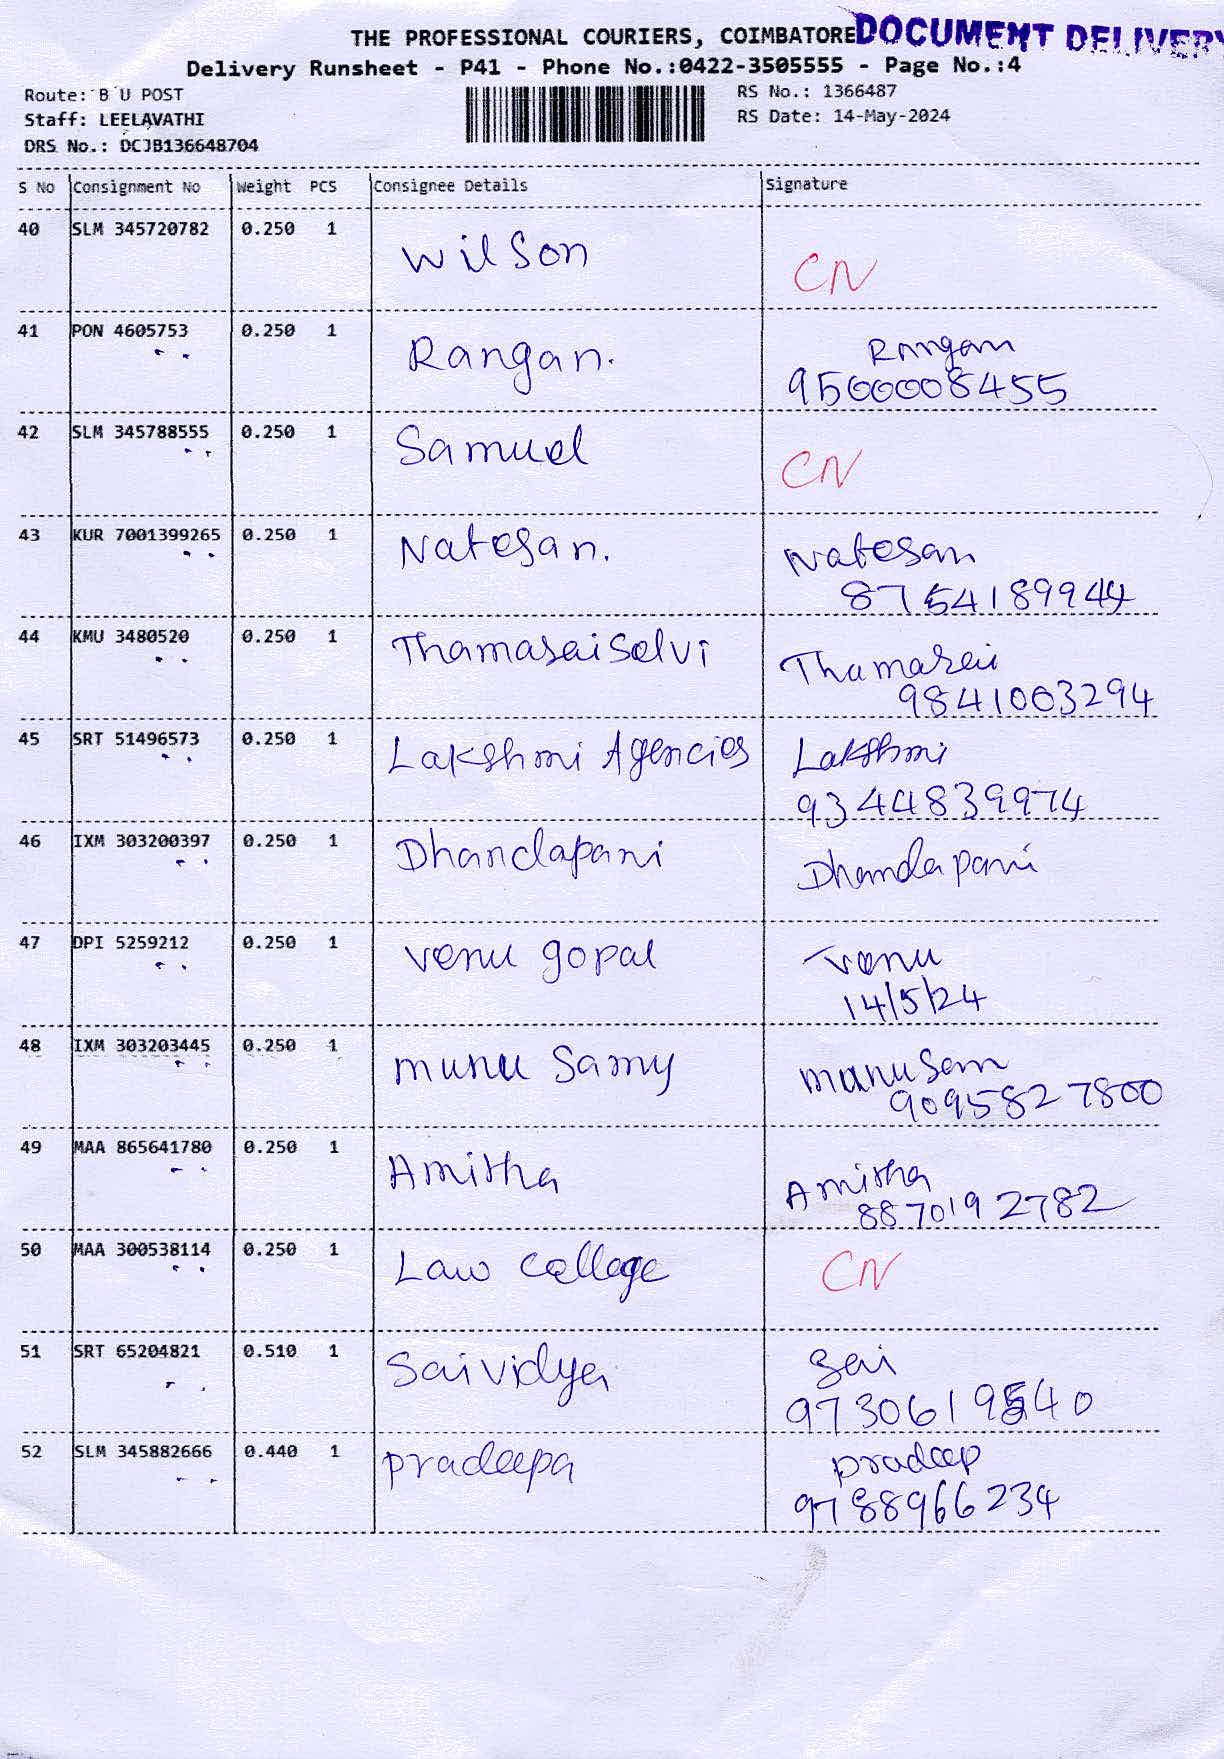 THE PROFESSIONAL COURIERS, COIMBATORE DOCUMENT DELIVERY
Delivery Runsheet - P41 - Phone No.:0422-3505555 - Page No.:4
Route: B U POST
RS No.: 1366487
Staff: LEELAVATHI
RS Date: 14-May-2024
DRS No.: DCJB136648704
S No Consignment No Weight PCS Consignee Details Signature
40 SLM 345720782 0.250 1
Wilson
CN
41 PON 4605753 0.250 1
Rangan.
Rangan
9500008455
42 SLM 345788555 0.250 1
Samuel
CN
43 KUR 7001399265 0.250 1
Natesan.
Natesan
8754189944
44 KMU 3480520 0.250 1
Thamaraiselvi
Thamarai
9841003294
45 SRT 51496573 0.250 1
Lakshmi Agencies
Lakshmi
9344839974
46 IXM 303200397 0.250 1
Dhandapani
Dhandapani
47 DPI 5259212 0.250 1
Venu gopal
Venu
14/5/24
48 IXM 303203445 0.250 1
munu Samy
munuSam
9095827800
49 MAA 865641780 0.250 1
Amitha
Amitha
8870192782
50 MAA 300538114 0.250 1
Law college
CN
51 SRT 65204821 0.510 1
Saividya
Sai
52 SLM 345882666 0.440 1
pradeepa
pradeep
9788966234